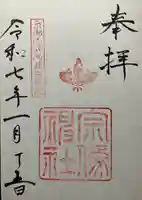 奉拝
宗像神社
令和七年一月十五日